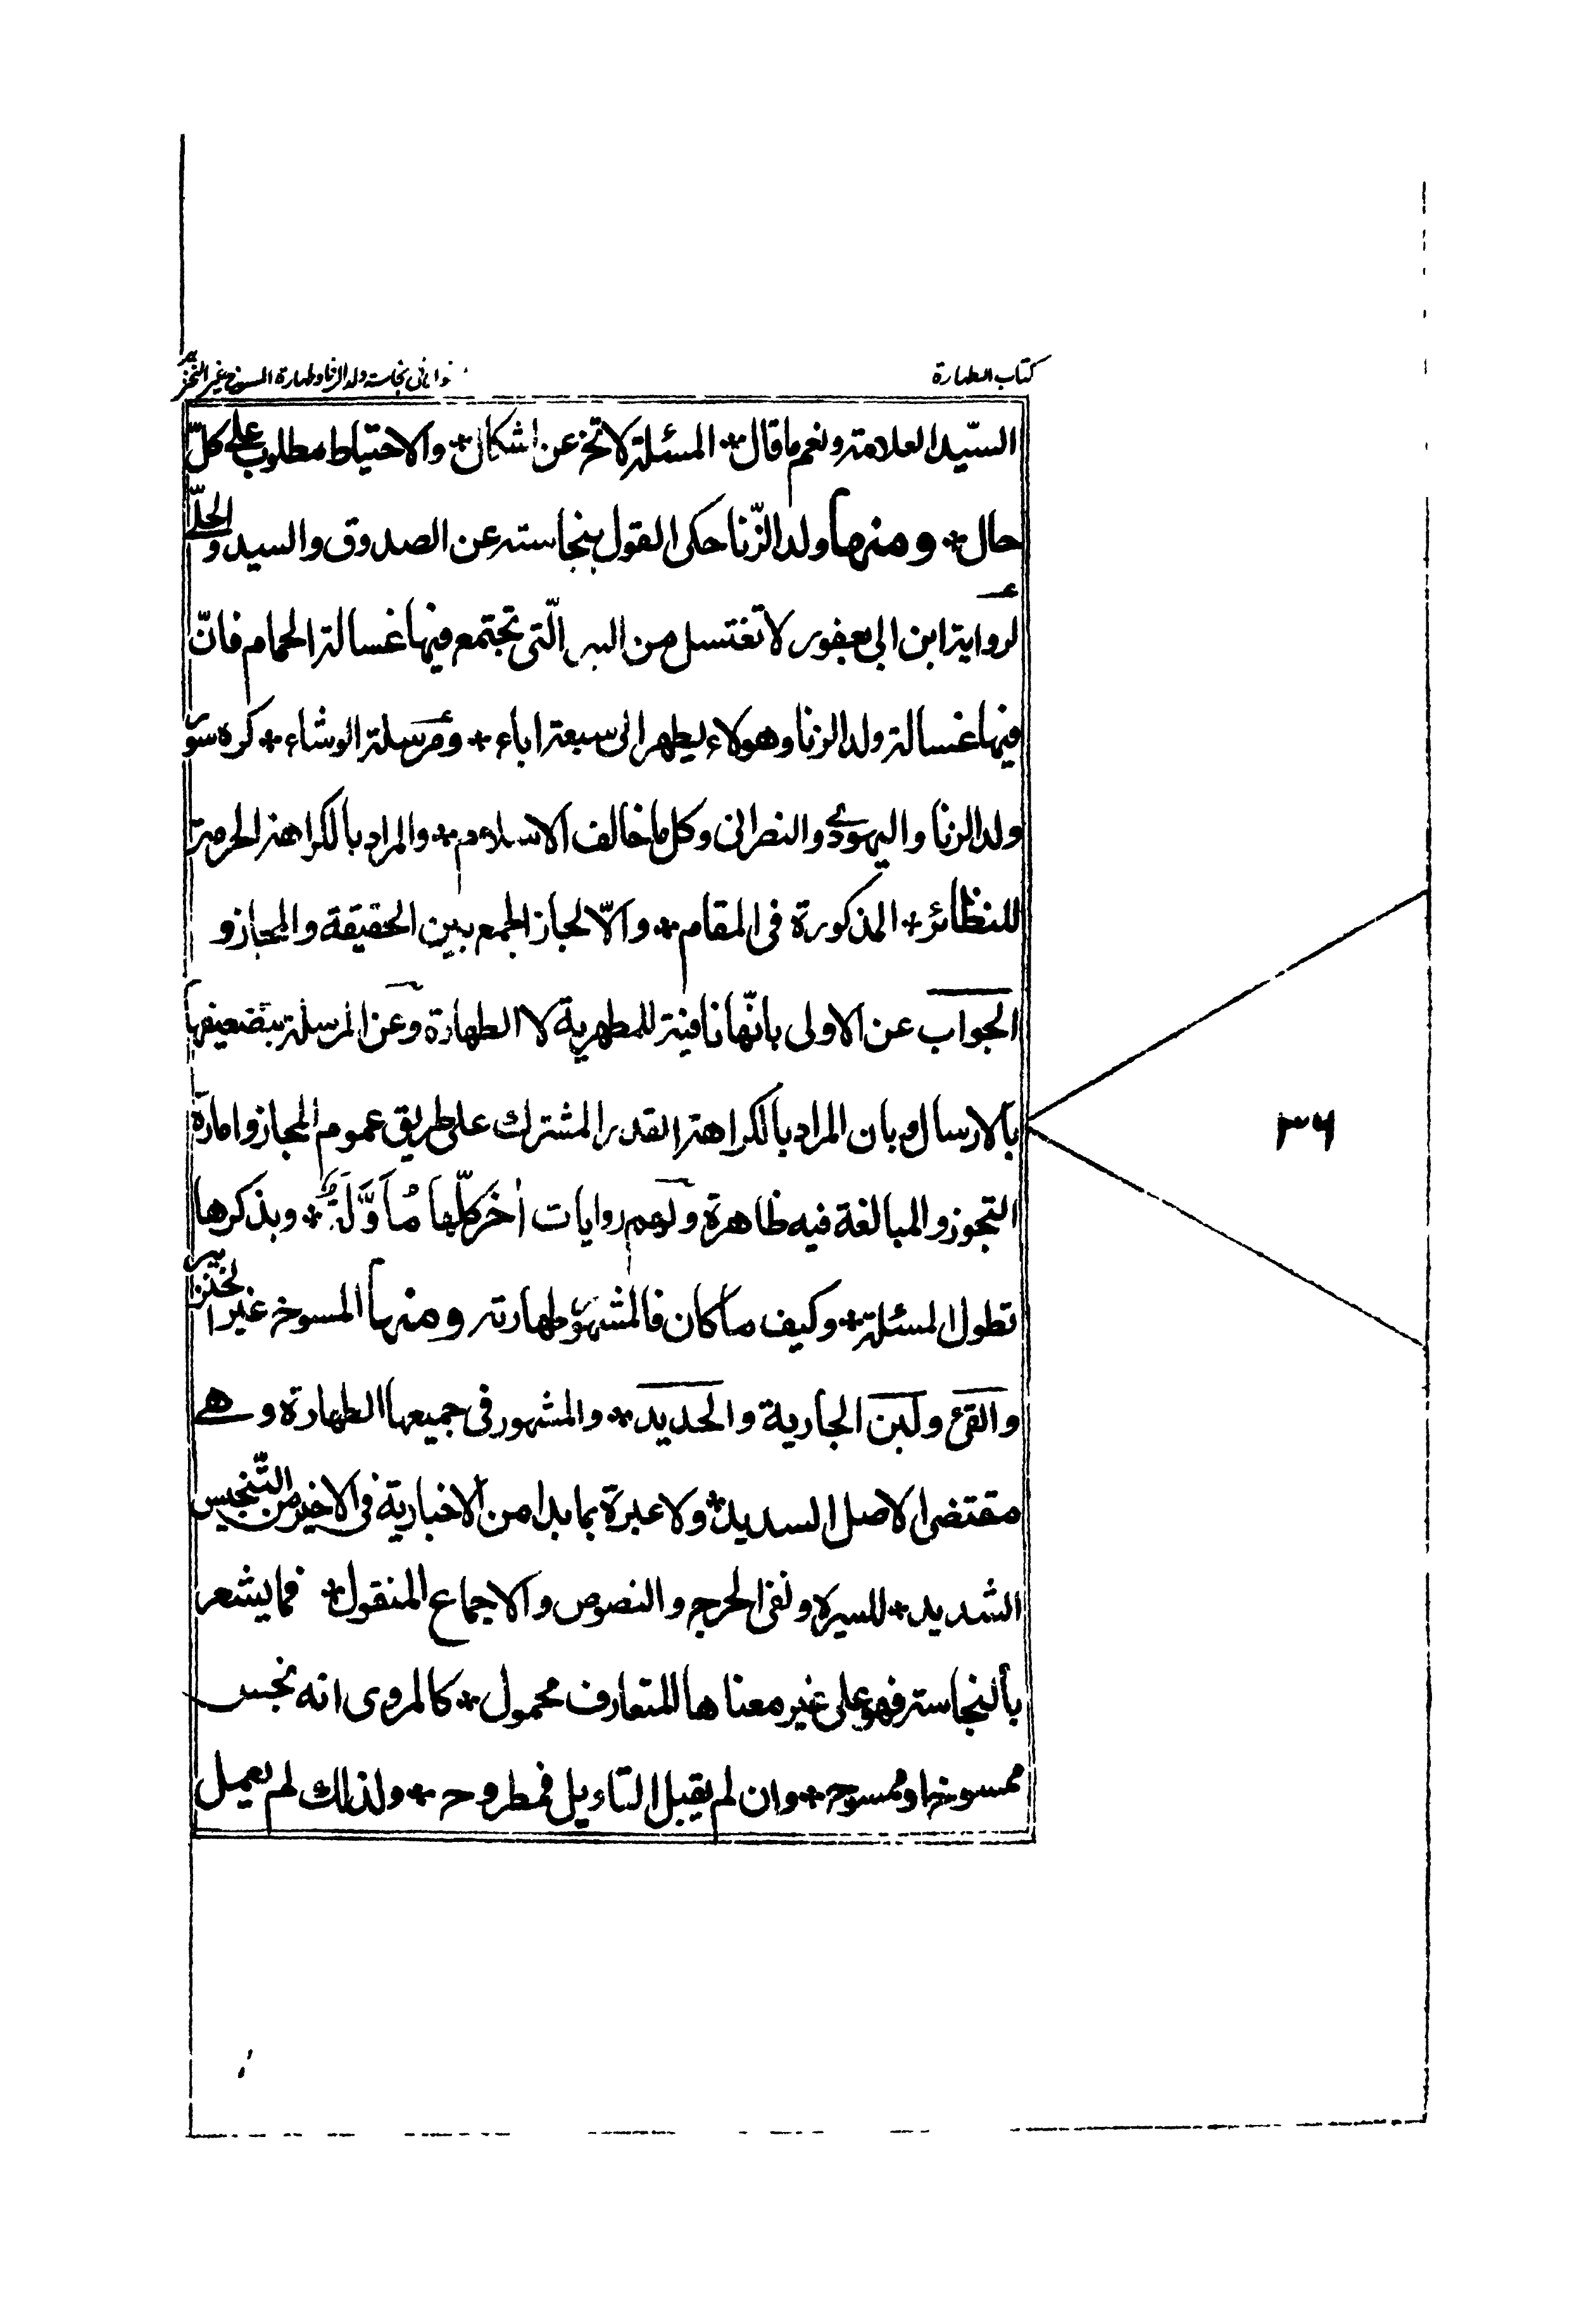 كتاب الطهارة
نجاسة ولد الزنا وطهارة المسوخ غير الخنزير
السّيد العلامة ونعم ما قال * المسئلة لا تخ عن اشكال * والاحتياط مطلوب على كلّ
حال * ومنها ولد الزّنا حكى القول بنجاسته عن الصدوق والسيد والحلّے
لرواية ابن ابى يعفور لا تغتسل من البئر الّتى تجتمع فيها غسالة الحمام فانّ
فيها غسالة ولد الزنا وهولاء يطهر الى سبعة اباء * ومرسلة الوشاء * كره سور
ولد الزنا واليهودے والنصرانى وكل ما خالف الاسلام * والمراد بالكراهة الحرمة
للنظائر * المذكورة فى المقام * والّا لجاز الجمع بين الحقيقة والمجاز و
الجواب عن الاولى بانّها نافية للمطهرية لا الطهارة وعن المرسلة بتضعيفها
بالارسال وبان المراد بالكراهة القدر المشترك على طريق عموم المجاز وامارة
التجوز والمبالغة فيه ظاهرة ولهم روايات اخر كلّها مُاَوَّلَة * وبذكرها
تطول المسئلة * وكيف ما كان فالمشهور طهارته ومنها المسوخ غير الخنزير
والقئ ولبن الجارية والحديد * والمشهور فى جميعها الطهارة وهے
مقتضى الاصل السديد * ولا عبرة بما بدا من الاخبارية فى الاخير من التّنجيس
الشديد * للسيرة ونفى الحرج والنصوص والاجماع المنقول * فما يشعر
بالنجاسة فهو على غير معناها المتعارف محمول * كالمروى انه نجس
ممسوخ او ممسوح * وان لم يقبل التاويل فمطروح * ولذلك لم يعمل
٣٦